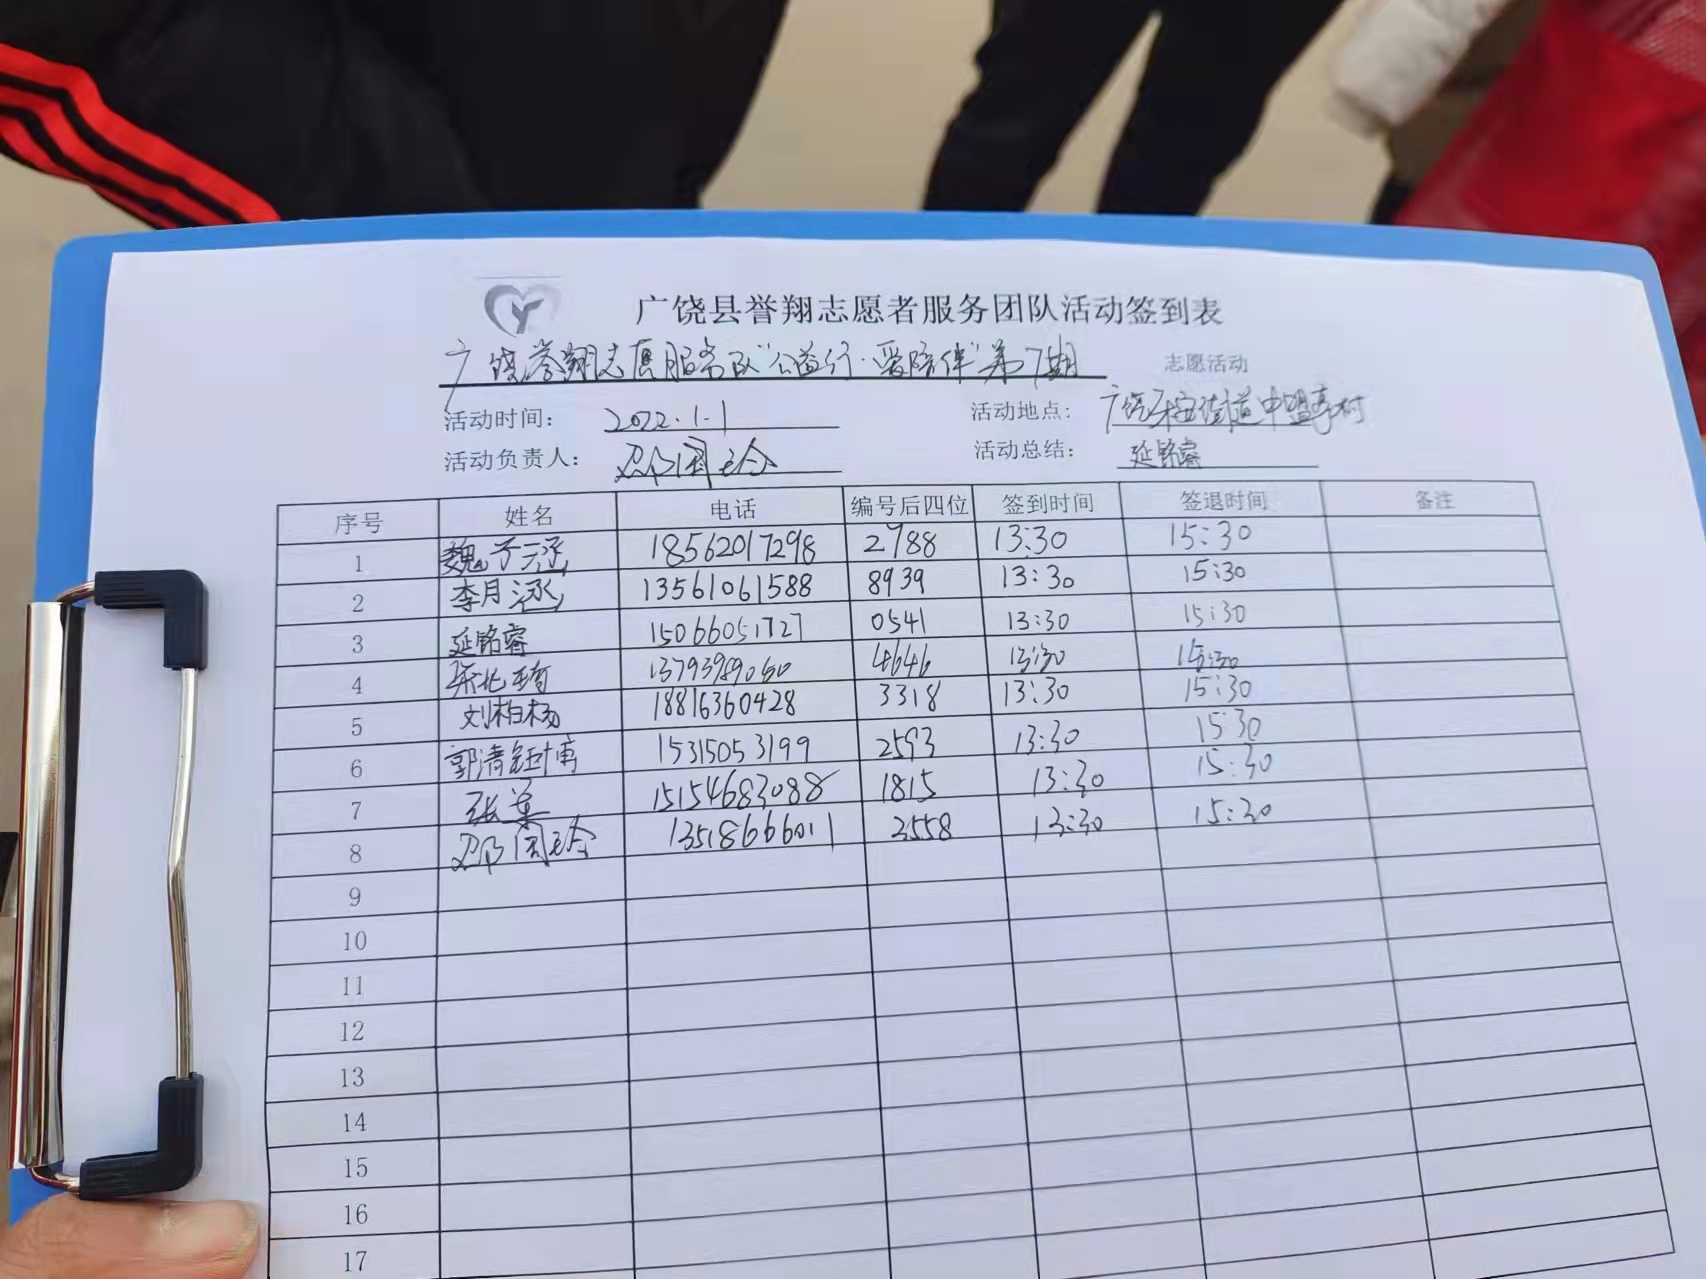 广饶县誉翔志愿者服务团队活动签到表
广饶誉翔志愿服务队“公益行·爱陪伴”第7期 志愿活动
活动时间: 2022.1.1 活动地点: 广饶 街道中盟 村
活动负责人: 邵国玲 活动总结: 延铭睿
序号 姓名 电话 编号后四位 签到时间 签退时间 备注
1 魏子涵 18562017298 2988 13:30 15:30
2 李月涵 13561061588 8939 13:30 15:30
3 延铭睿 15066051727 0541 13:30 15:30
4 4646 13:30 15:30
5 刘柏杨 18816360428 3318 13:30 15:30
6 郭清 15315053199 2593 13:30 15:30
7 张 15154683088 1815 13:30 15:30
8 邵国玲 13518666011 3558 13:30 15:30
9
10
11
12
13
14
15
16
17